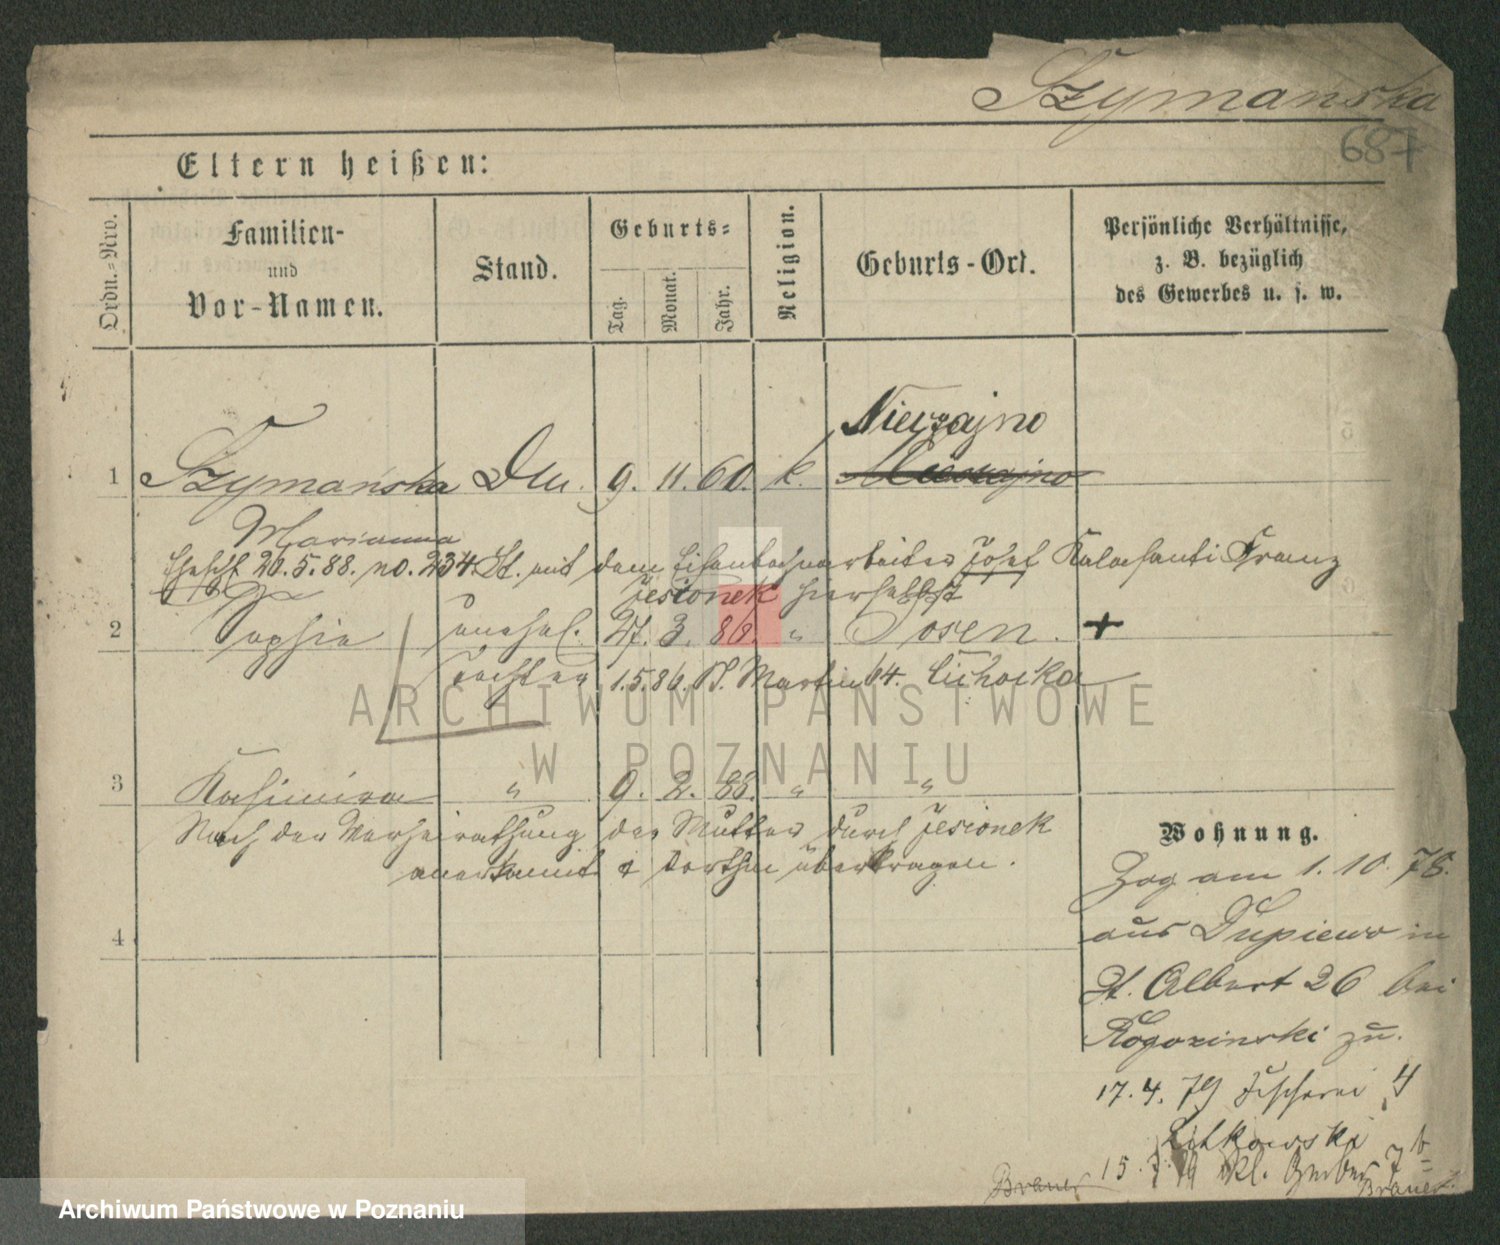 Szymańska
687
Eltern heißen:
Ordn.=Nro.
Familien-
und
Vor-Namen.
Stand.
Geburts=
Tag.
Monat.
Jahr.
Religion.
Geburts-Ort.
Persönliche Verhältnisse,
z. B. bezüglich
des Gewerbes u. s. w.
Nierzajno
1 Szymańska 9. 11. 60. k.
Marianna
20.5.88. no. 234 St. mit dem Eisenbahnarbeiter Josef Kalasanti Franz
Jesionek hierselbst
2 Sophie unehel. 27. 3. 86. " Posen. +
Tochter 1.5.86. St. Martin 64. Cichocka
3 Kasimira " 9. 2. 88. " "
Nach der Verheirathung der Mutter durch Jesionek
anerkannt & dorthin übertragen.
4
Wohnung.
Zog am 1. 10. 78.
aus Dupiewo in
St. Albert 26 bei
Rogozinski zu.
17. 4. 79 Fischerei 4
Litkowski
15. 7. 79 kl. Gerber 7b
Brauer
Brauer.
ARCHIWUM PAŃSTWOWE
W POZNANIU
Archiwum Państwowe w Poznaniu